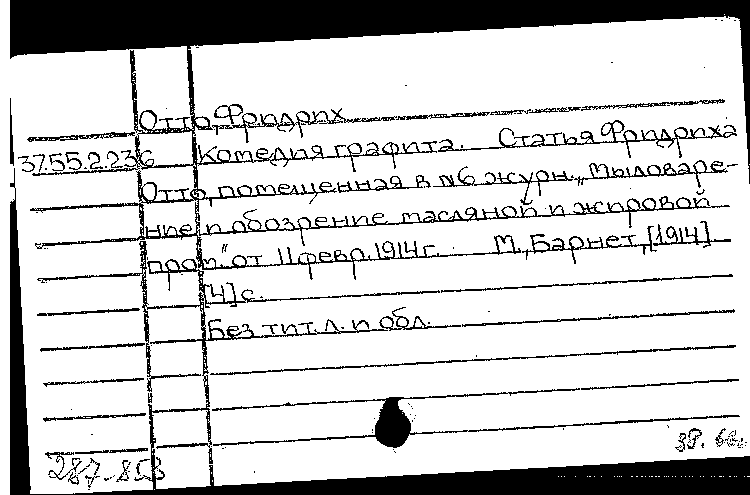 Отто, Фридрих
37.55.2.236 Комедия графита. Статья Фридриха
Отто, помещенная в №6 журн. „Мыловаре-
ние и обозрение масляной и жировой
пром." от 11 февр. 1914 г. М., Барнет, [1914]
[4] с.
Без тит. л. и обл.
287-853